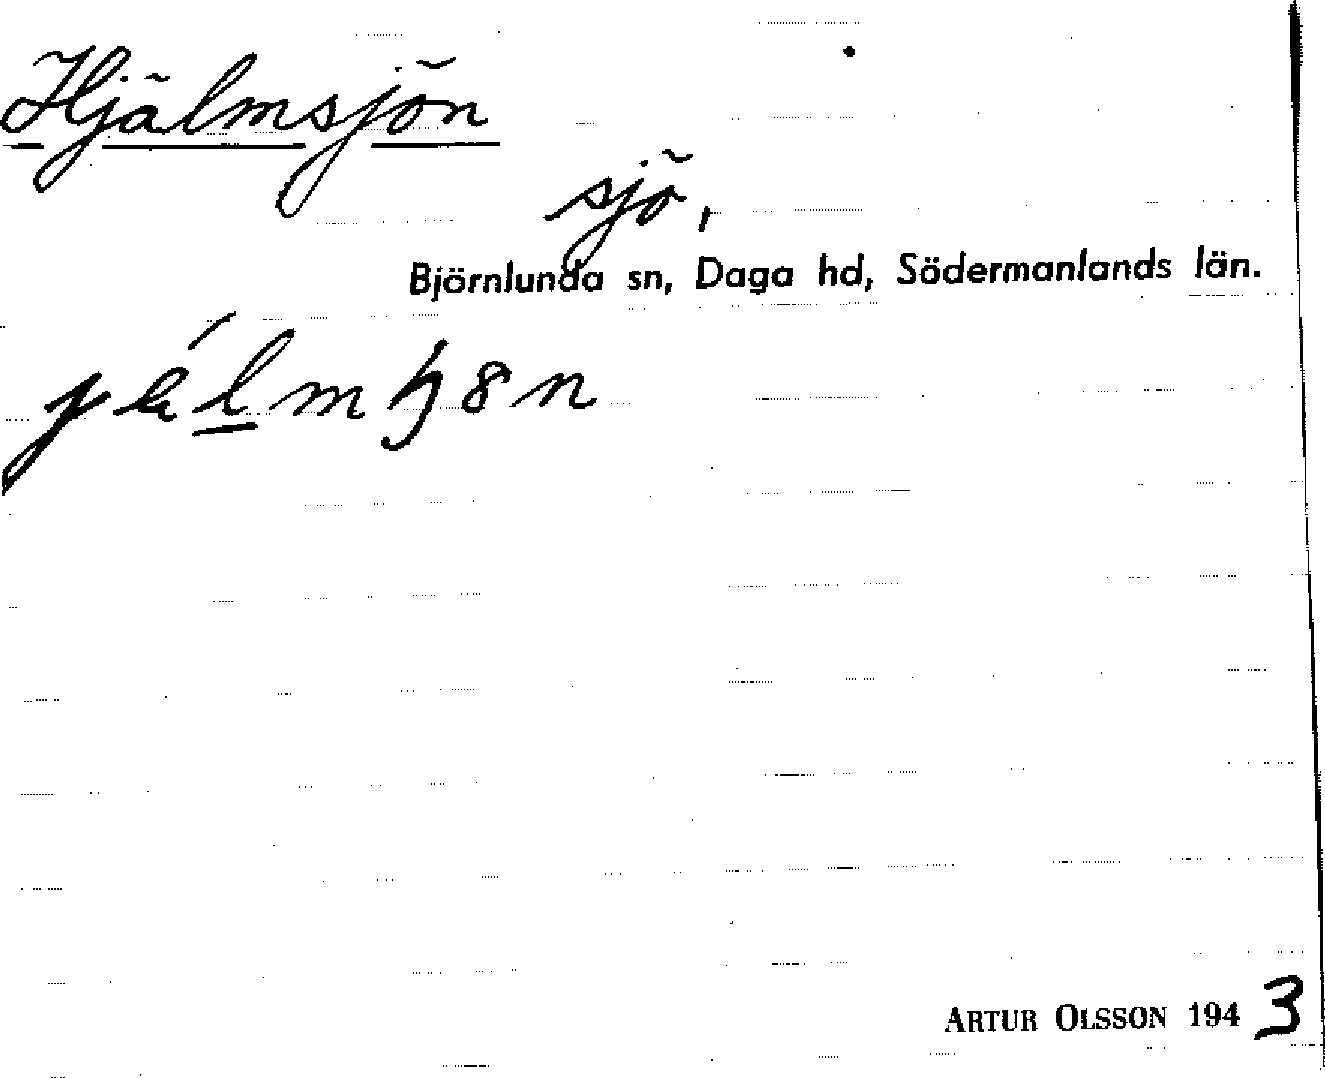 Hjälmsjön
sjö,
Björnlunda sn, Daga hd, Södermanlands län.
ARTUR OLSSON 1943